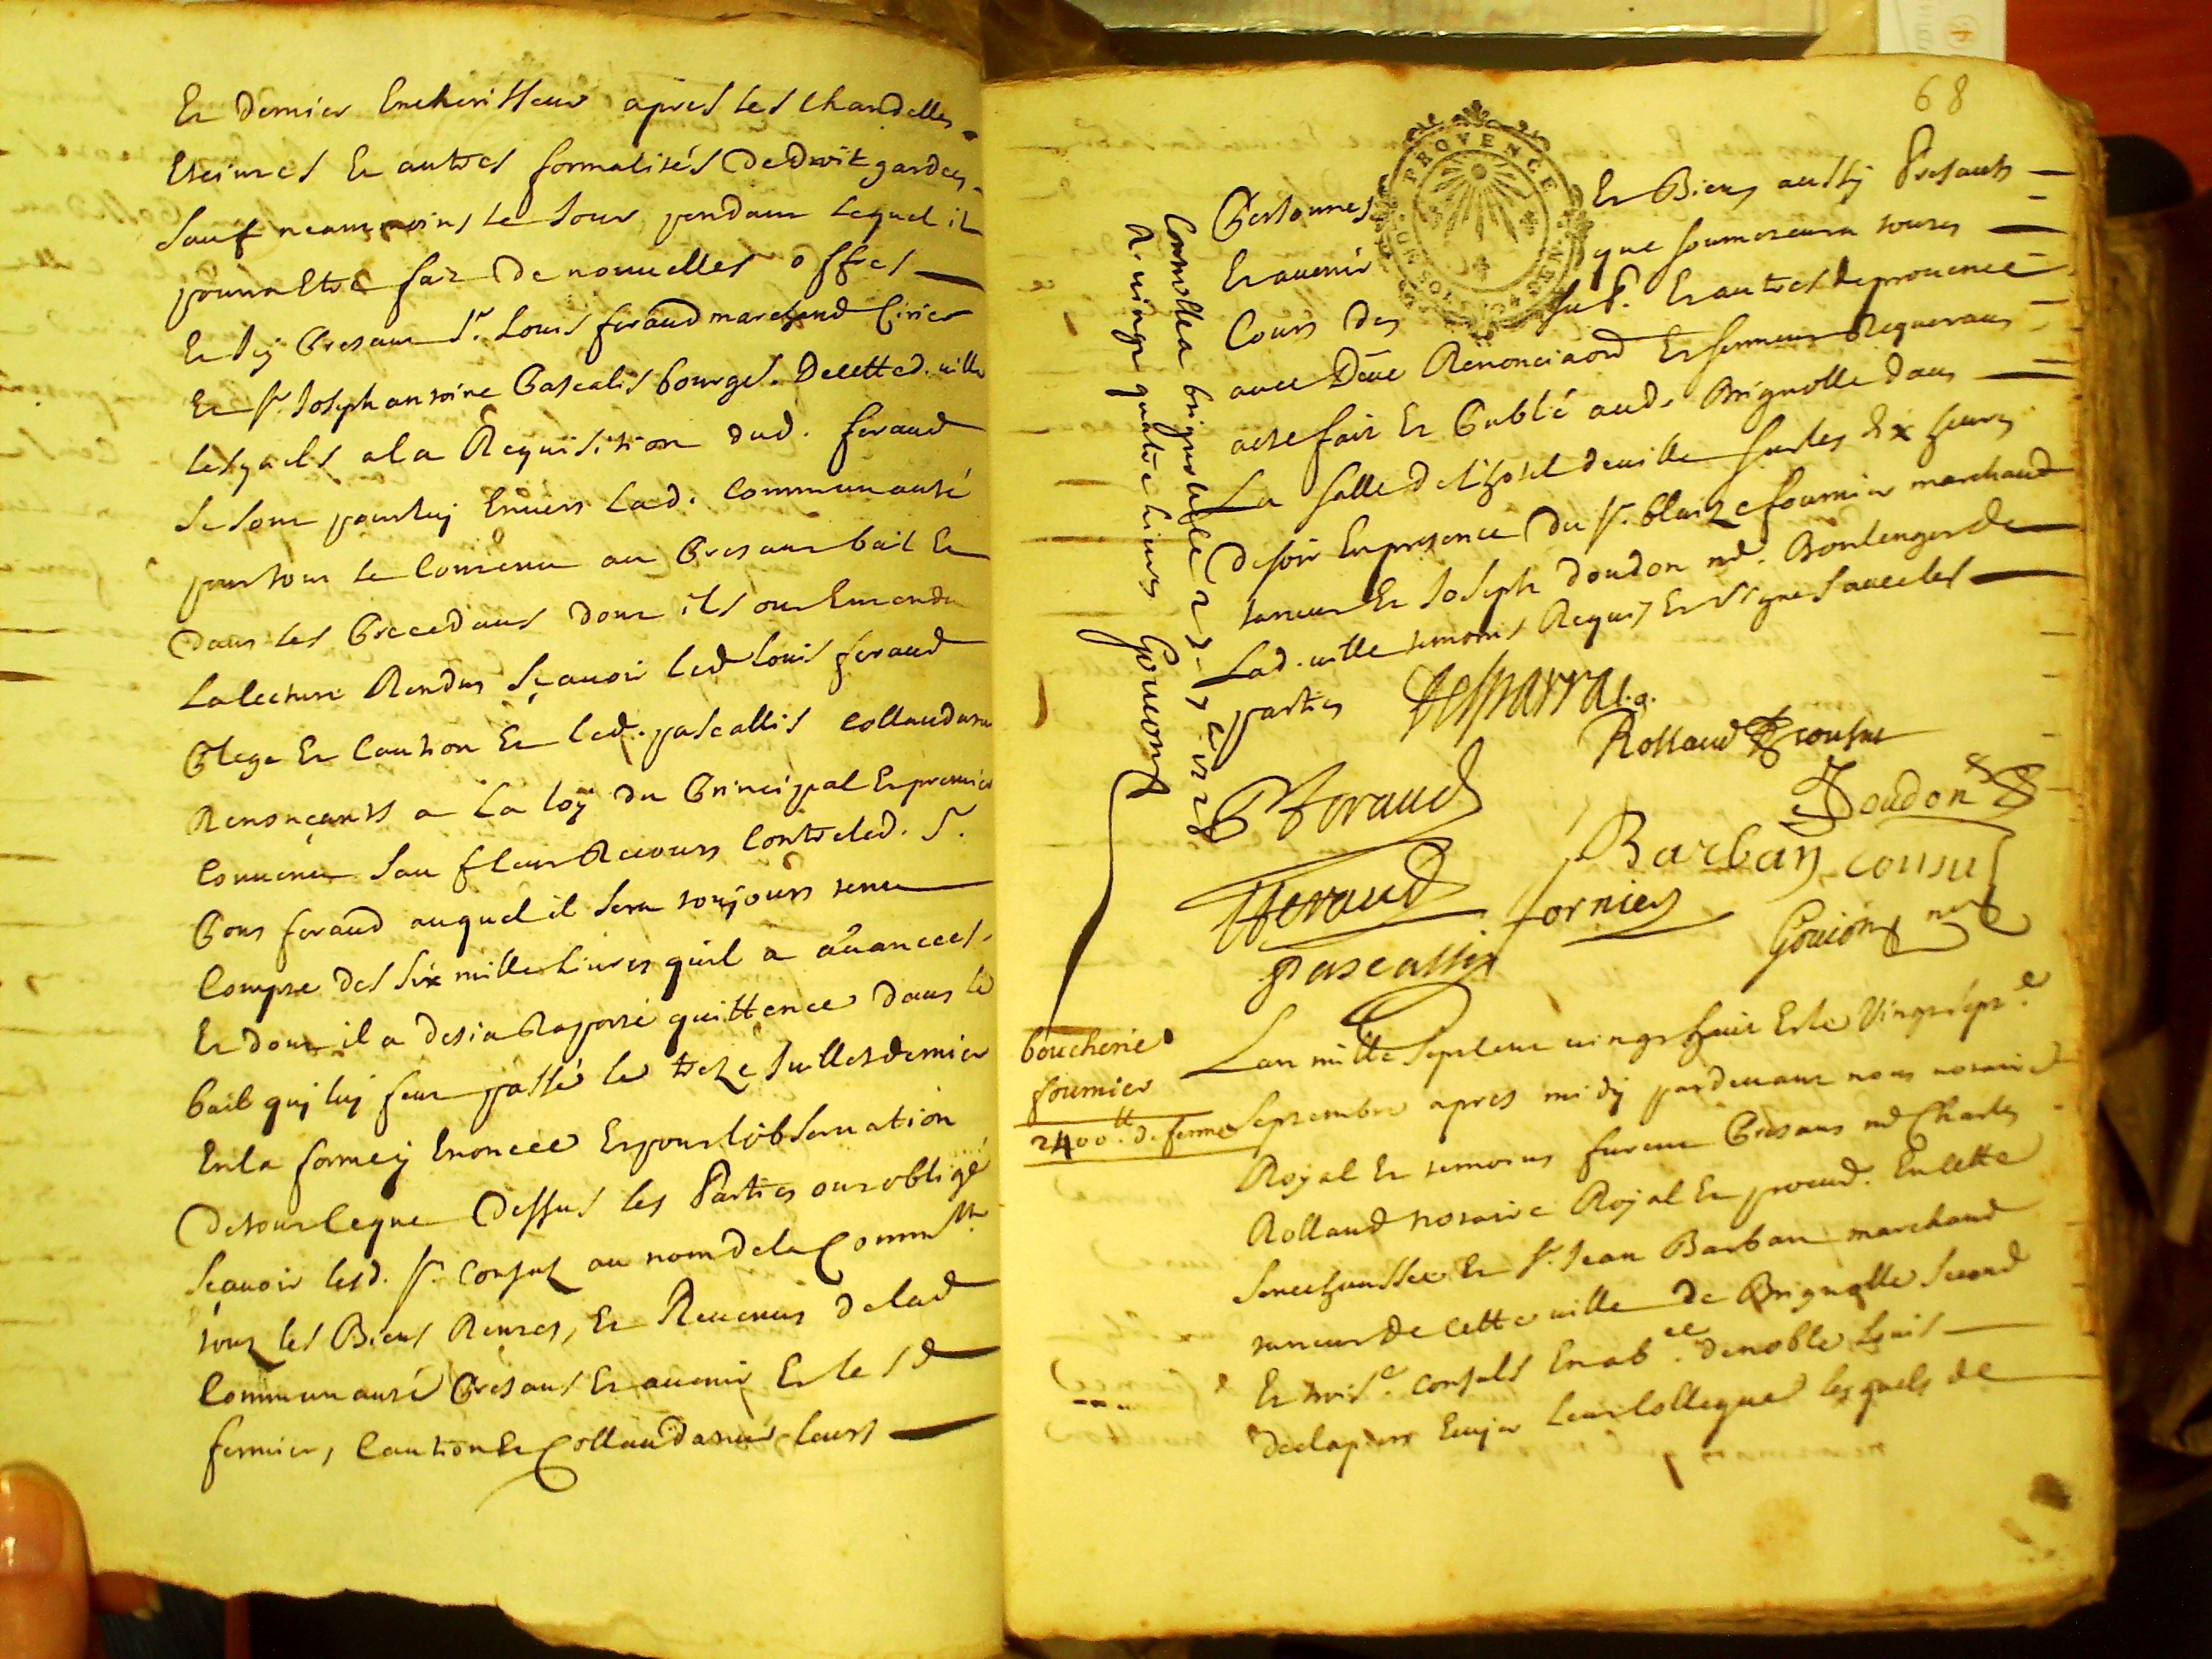 Et dernier Encherisseur apres les Chandelles
Eteintes Et autres formalités de droit gardées
Sauf neammoins le Jour pendant lequel il
pourra Etre fait de nouuelles offres
Et Icy Present Sr. Louis feraud marchand Cirier
Et Sr. Joseph antoine Pascalis bourgs. De cette d. ville
Lesquels a la Requisition dud. feraud
Se sont pour luy Enuers Lad. Communauté
pour tout le Contenu au Present bail Et
Dans les Precedans dont ils ont Entendu
La lecture Rendus Sçauoir led Louis feraud
Plege Et Caution Et led. pascallis Collaudateur
Renonçants a La loy du Principal Et premier
Conuenu Sauf leur Recours Contre led. S.
Pons feraud auquel il Sera toujours tenu
Compte des Six mille Liures quil a auancées
Et dont il a desia Raporté quittence dans le
bail quj luy feut passé le treze Juillet dernier
En la forme y Enoncée Et pour lobseruation
De tout ce que Dessus les Parties ont obligé
Scauoir lesd. Srs. Consuls au nom de la Commté.
tous les Biens Rentes, Et Reuenus de lad
Communauté Presans Et auenir Et les d
fermier, Caution Et Collaudateur leurs
68
PROVENCE
Personnes Et Biens aussy Presants
Et auenir que soumeteura toutes
Cours des sub. Et autres de prouence
auec Deüe Renonciaon Et serment Requerans
acte fait Et Publié aud. Brignolle dans
La Salle de l'hotel de ville sur les six heures
de soir En presence du Sr. blaize fournier marchand
taneur Et Joseph doudon me. Boulenger de
Lad. uille temoins Requis Et Signes auec les
parties
Rolland consul
P Feraud
Doudon
Barban consul
Feraud
fornier
Pascallis
Goujon nore
Controllé a brignolle
R. vingt quatre liures Goujon
boucherie
fournier
2400tt. de ferme
Lan mille Sept cent vingt huit Et le Vingt sept.e
Septembre apres midy pardeuant nous notaire
Royal Et temoins furent Presans me Charles
Rolland notaire Royal Et procur. En cette
Senechaussée Et Sr. Jean Barban marchand
tanneur de cette uille de Brignolle Second
Et trois.e consuls En abce. de noble Louis
declapiers Ecuyer Leur Collegue lesquels de